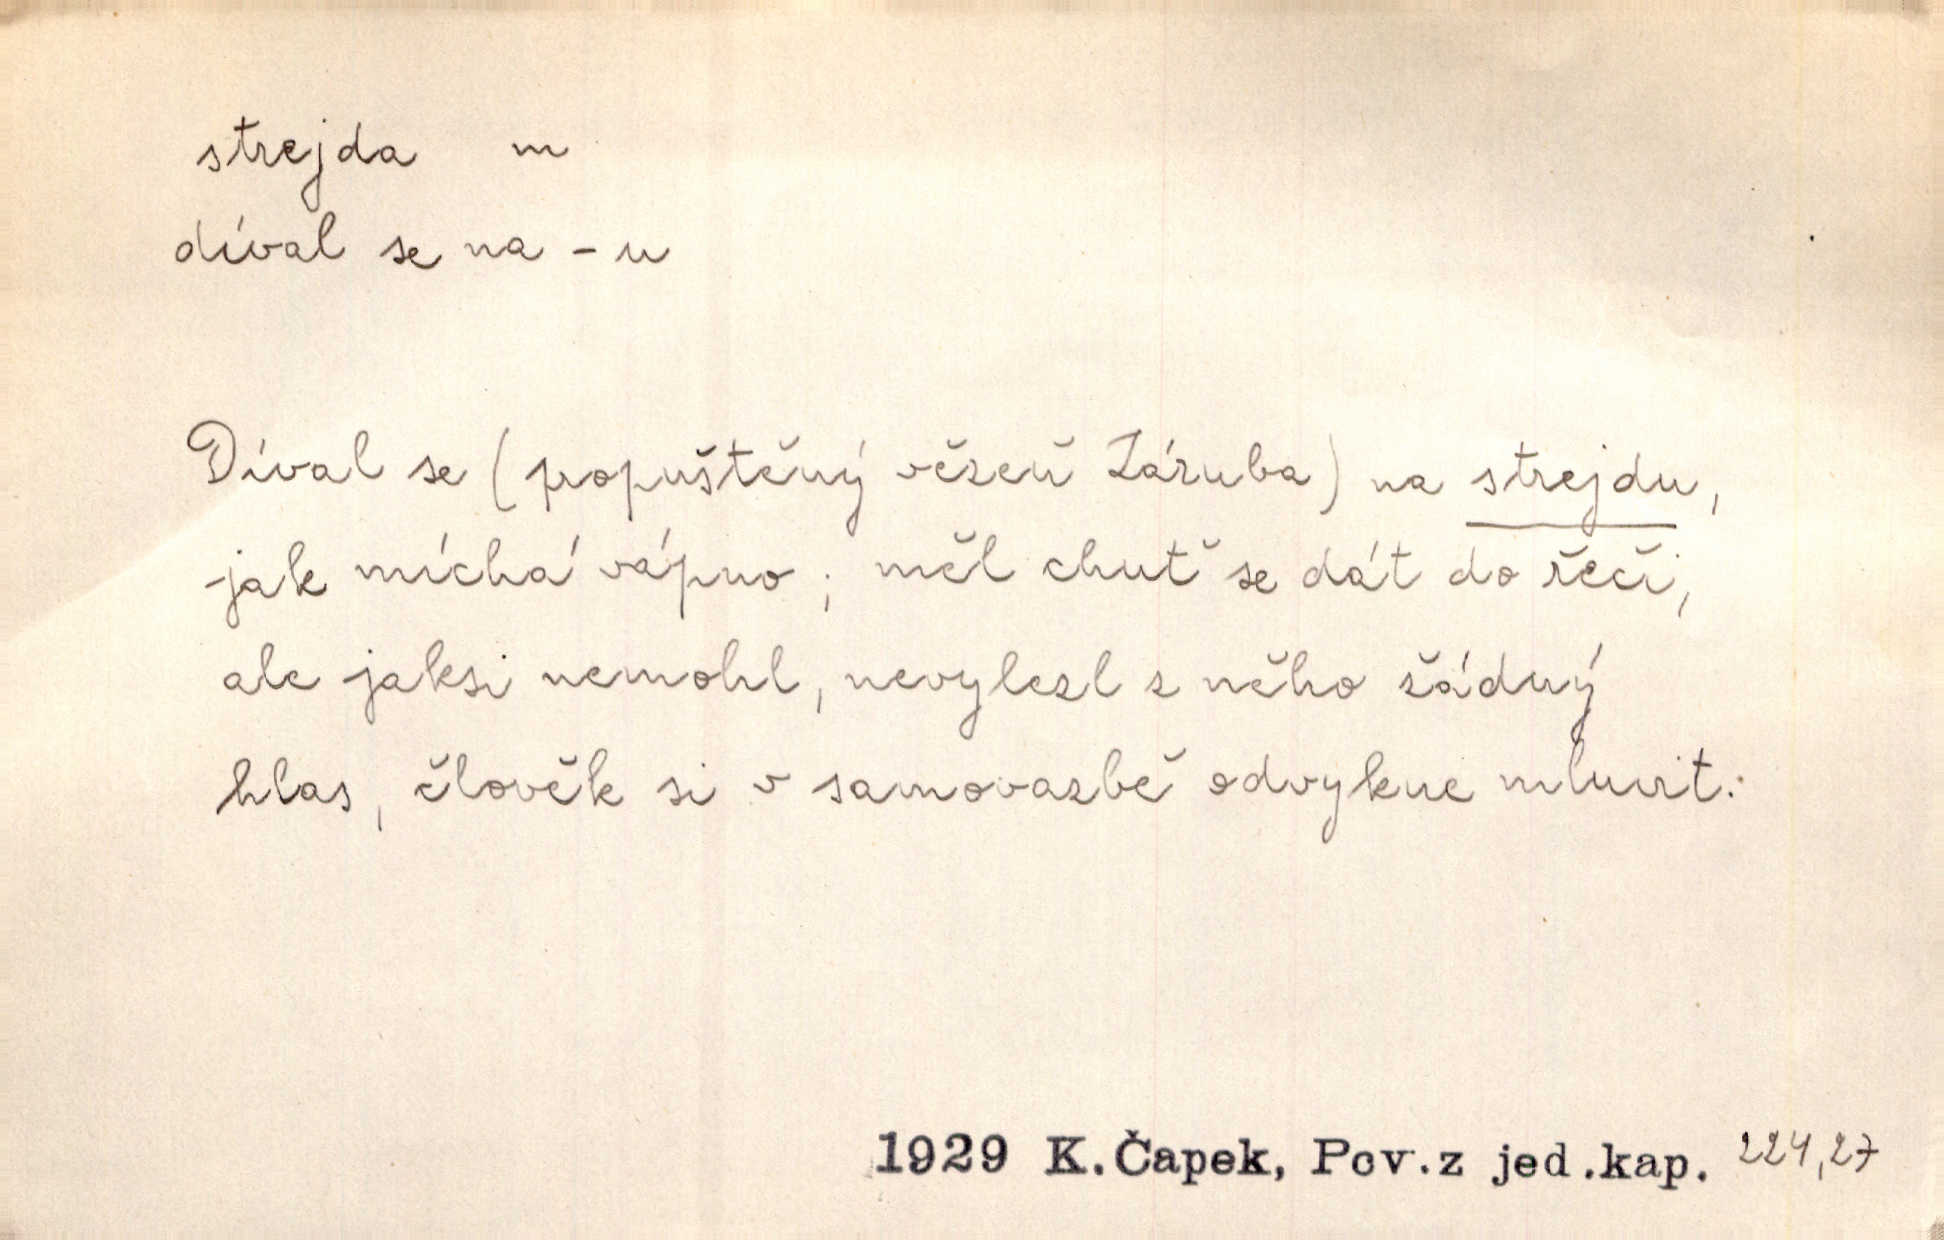 strejda m
díval se na -u
Díval se (propuštěný vězeň Záruba) na strejdu,
jak míchá vápno; měl chuť se dát do řeči,
ale jaksi nemohl, nevylezl z něho žádný
hlas, člověk si v samovazbě odvykne mluvit.
1929 K.Čapek, Pov.z jed.kap. 224,27